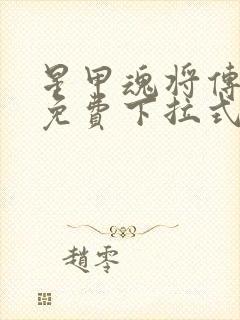 星甲魂将傳
免費下拉式
趙零